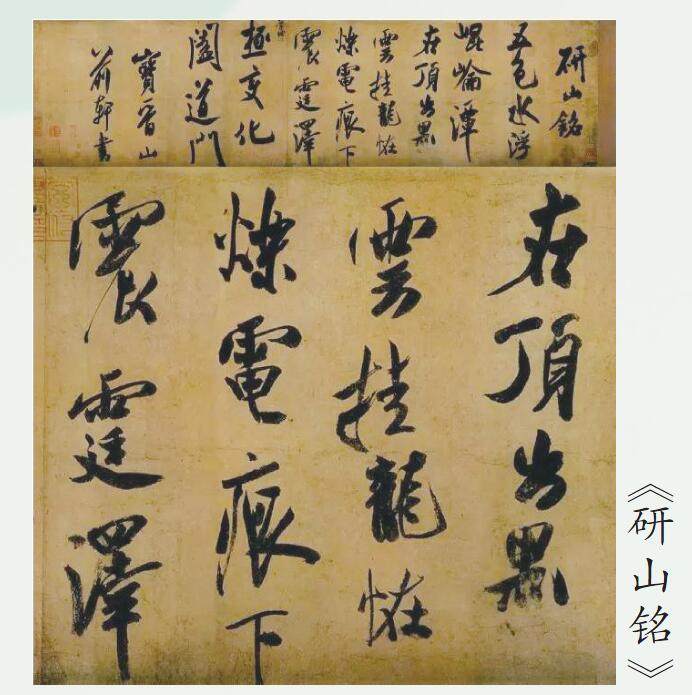 研山銘
五色水浮
崐崘潭
在頂出黑
雲挂龍恠
爍電痕下
震霆澤
極變化
闔道門
寶晉山
前軒書
在頂出黑
雲挂龍恠
爍電痕下
震霆澤
《研山铭》